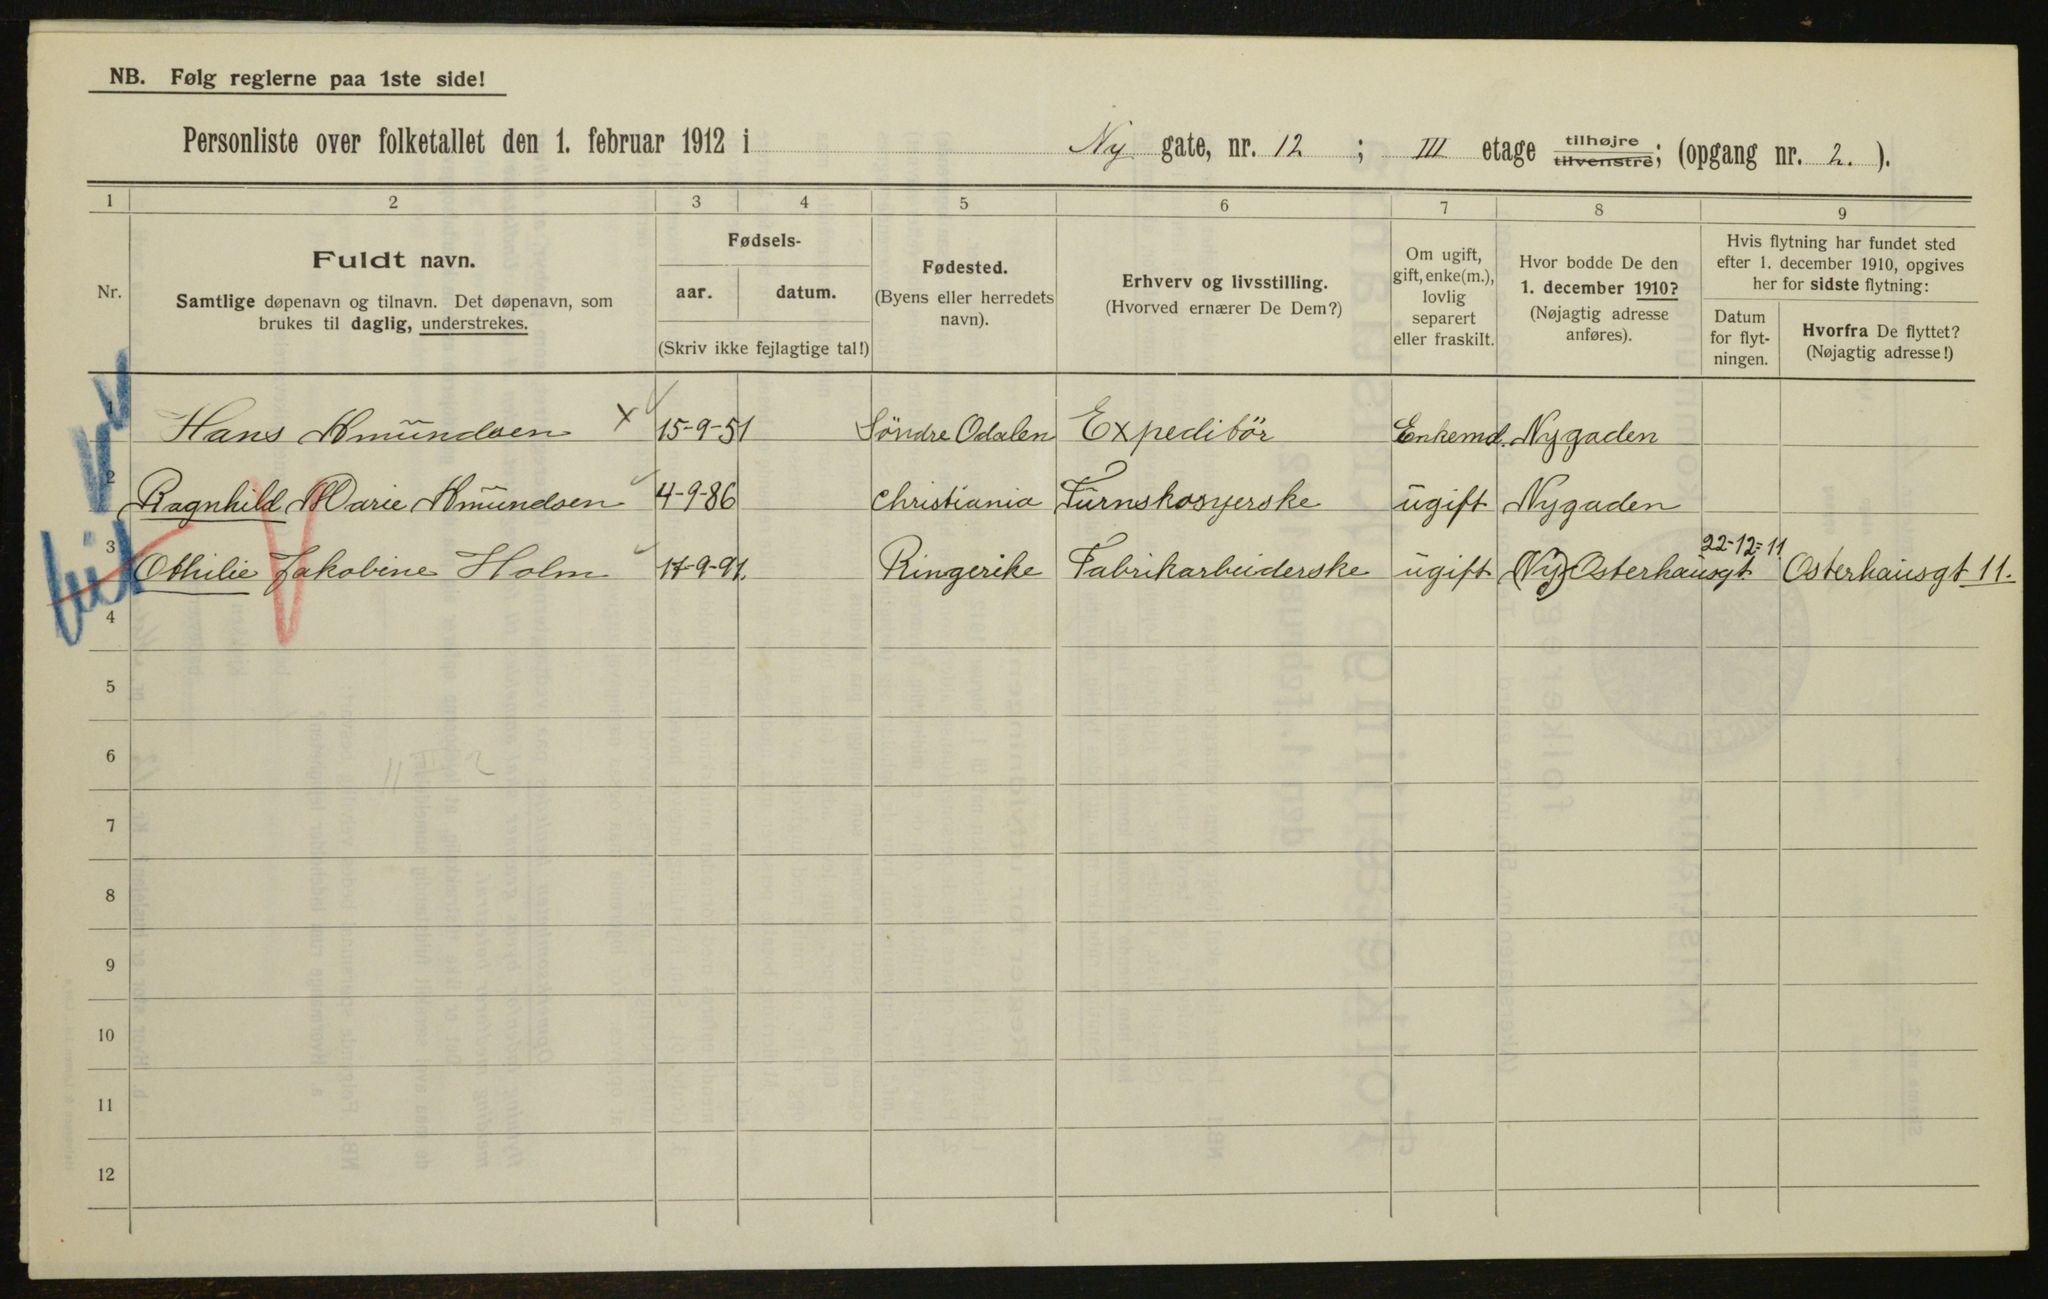 NB. Følg reglerne paa 1ste side!
Personliste over folketallet den 1. februar 1912 i Ny gate, nr. 12 ; III etage tilhøjre tilvenstre; (opgang nr. 2. ).
1 2 3 4 5 6 7 8 9
Nr.
Fuldt navn.
Samtlige døpenavn og tilnavn. Det døpenavn, som
brukes til daglig, understrekes.
Fødsels-
aar. datum.
(Skriv ikke fejlagtige tal!)
Fødested.
(Byens eller herredets
navn).
Erhverv og livsstilling.
(Hvorved ernærer De Dem?)
Om ugift,
gift, enke(m.),
lovlig
separert
eller fraskilt.
Hvor bodde De den
1. december 1910?
(Nøjagtig adresse
anføres).
Hvis flytning har fundet sted
efter 1. december 1910, opgives
her for sidste flytning:
Datum
for flyt-
ningen.
Hvorfra De flyttet?
(Nøjagtig adresse!)
1 Hans Amundsen X 15-9-51 Söndre Odalen Expeditör Enkemd. Nygaden
2 Ragnhild Marie Amundsen 4-9-86 Christiania Nygaden ugift
3 Othilie Jakobine Holm 14-9-91. Ringerike Fabrikarbeiderske ugift (Ny) Osterhausgt 22-12-11 Osterhausgt 11.
4
5
6
7
8
9
10
11
12